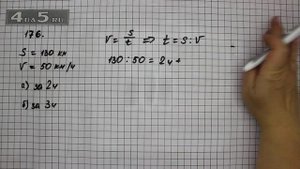 4APS.RU
176.
S = 130 км
V = 50 км/ч
а) за 2ч
б) за 3ч
V = S/t ⇒ t = S : V
130 : 50 = 2ч +